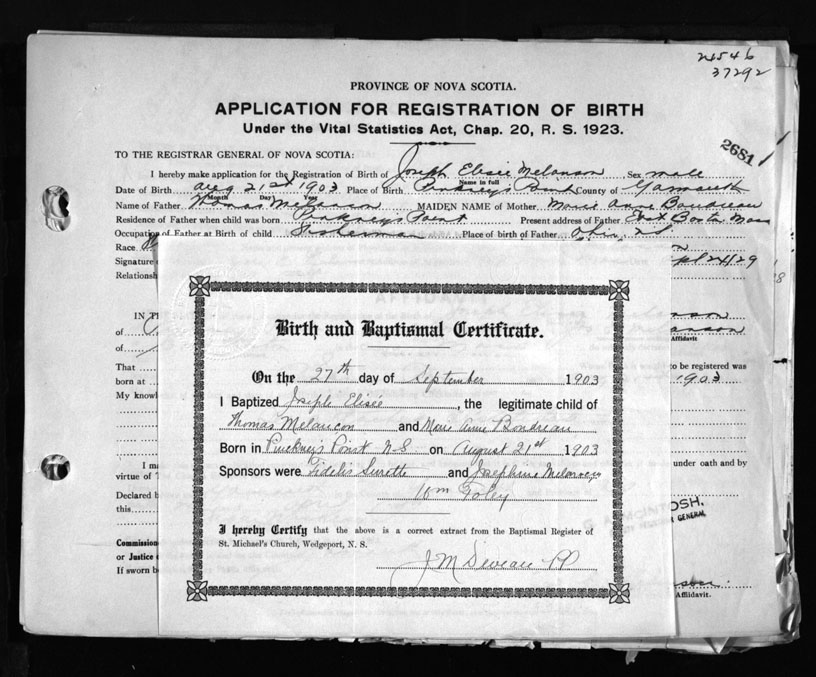 37292
PROVINCE OF NOVA SCOTIA.
APPLICATION FOR REGISTRATION OF BIRTH
Under the Vital Statistics Act, Chap. 20, R. S. 1923.
2681
TO THE REGISTRAR GENERAL OF NOVA SCOTIA:
I hereby make application for the Registration of Birth of Joseph Elisée Melanson Sex male
Name in full
Date of Birth Aug 21st 1903 Place of Birth Pinkney's Point County of Yarmouth
Month Day Year
Name of Father Thomas Melanson MAIDEN NAME of Mother Marie Anne Boudreau
Residence of Father when child was born Pinkney's Point Present address of Father East Boston Mass
Occupation of Father at Birth of child Fisherman Place of birth of Father
Race
Signature
Relationsh
IN TH
of
Affidavit
of
That
to be registered was
born at
1903
My knowl
I ma
under oath and by
virtue of
Declared b
this
McINTOSH,
GENERAL
Commission
or Justice
If sworn b
Affidavit.
Birth and Baptismal Certificate.
On the 27th day of September 1903
I Baptized Joseph Elisée, the legitimate child of
Thomas Melancon and Marie Anne Boudreau
Born in Pinckney's Point N.S on August 21st 1903
Sponsors were Fidelis Surette and Josephine Melancon
Wm Foley
I hereby Certify that the above is a correct extract from the Baptismal Register of
St. Michael's Church, Wedgeport, N. S.
J M Deveau PP